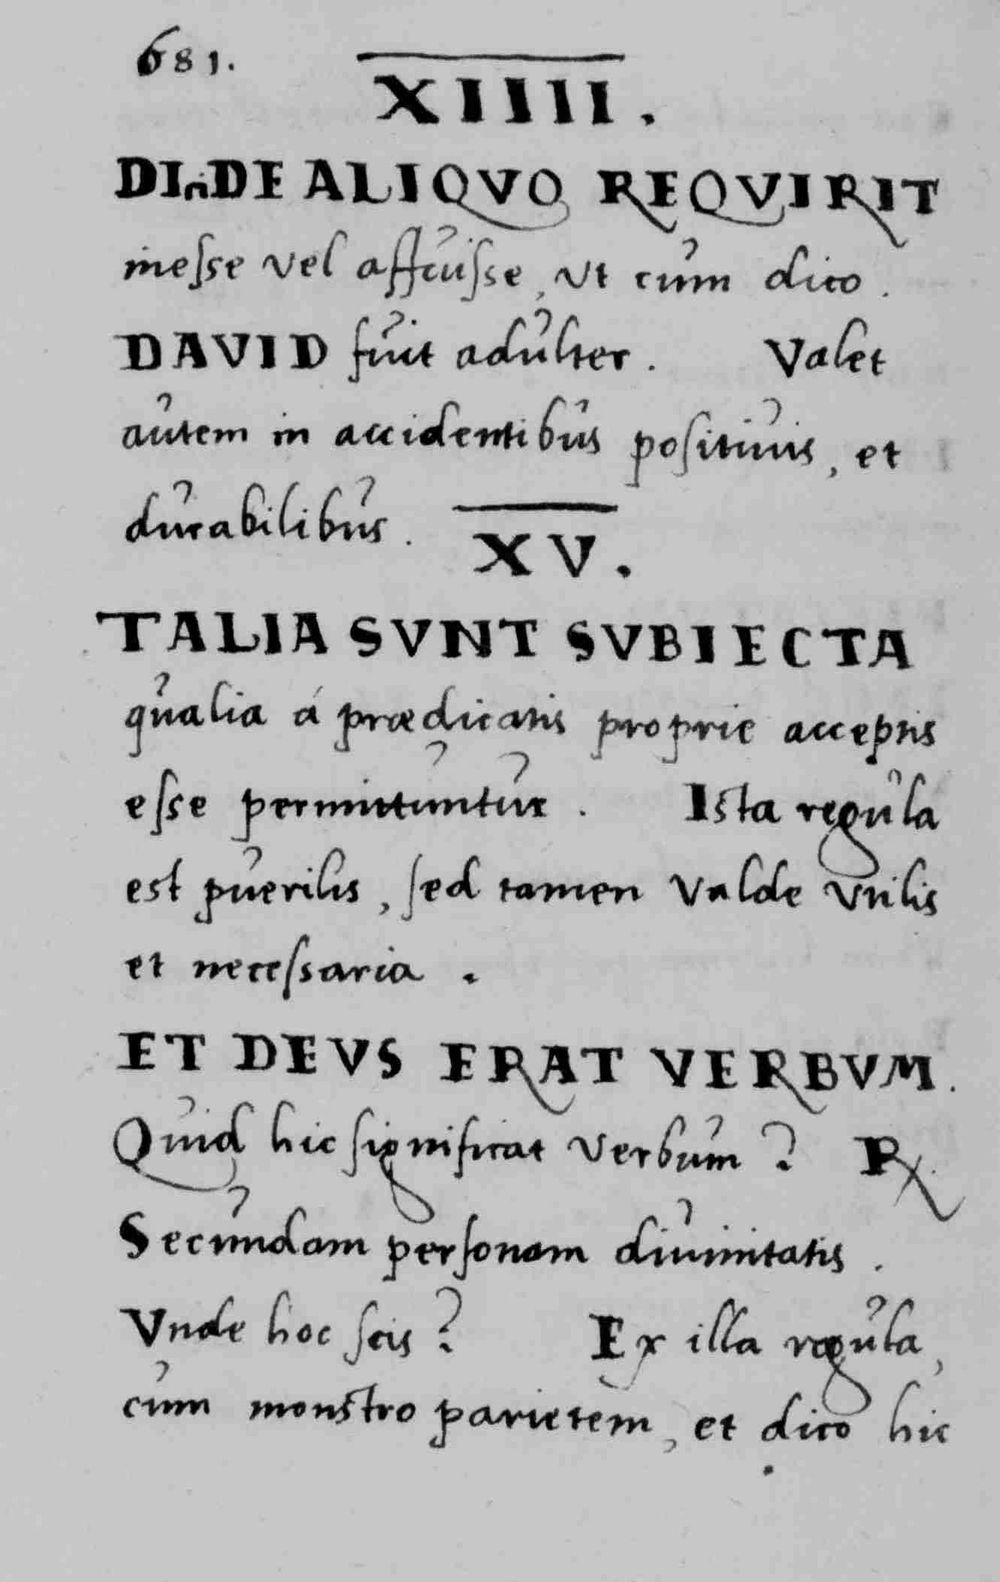 681.
XIIII.
DInDE ALIQVO REQVIRIT
inesse vel affuisse, ut cum dico.
DAVID fuit adulter. Valet
autem in accidentibus positiuis, et
durabilibus.
XV.
TALIA SVNT SVBIECTA
qualia á prædicatis proprie acceptis
esse permittuntur. Ista regula
est puerilis, sed tamen valde vtilis
et necessaria.
ET DEVS ERAT VERBVM.
Quid hic significat verbum? ℞.
Secundam personam diuinitatis.
Vnde hoc scis? Ex illa regula,
cum monstro parietem, et dico hic